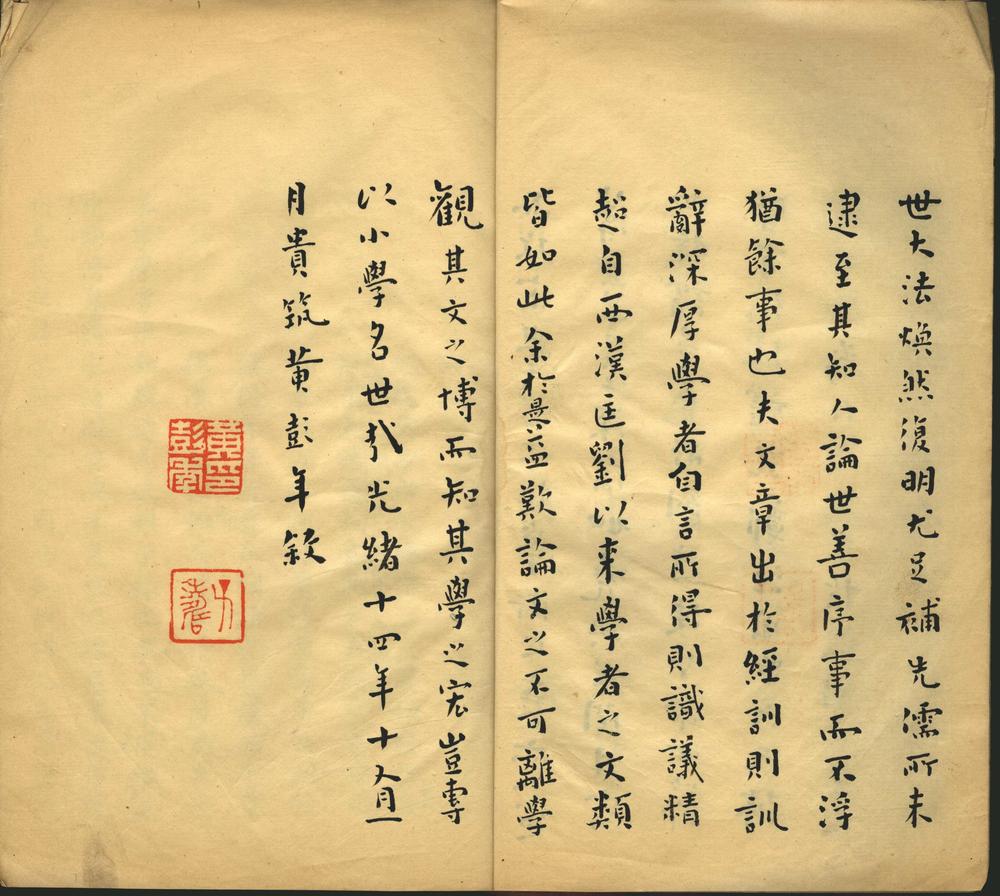 世大法煥然復明尤足補先儒所未
逮至其知人論世善序事而不浮
猶餘事也夫文章出於經訓則訓
辭深厚學者自言所得則識議精
超自西漢匡劉以來學者之文類
皆如此余於是益歎論文之不可離學
觀其文之博而知其學之宏豈專
以小學名世哉光緒十四年十有一
月貴筑黃彭年敘
黃印彭年
子壽